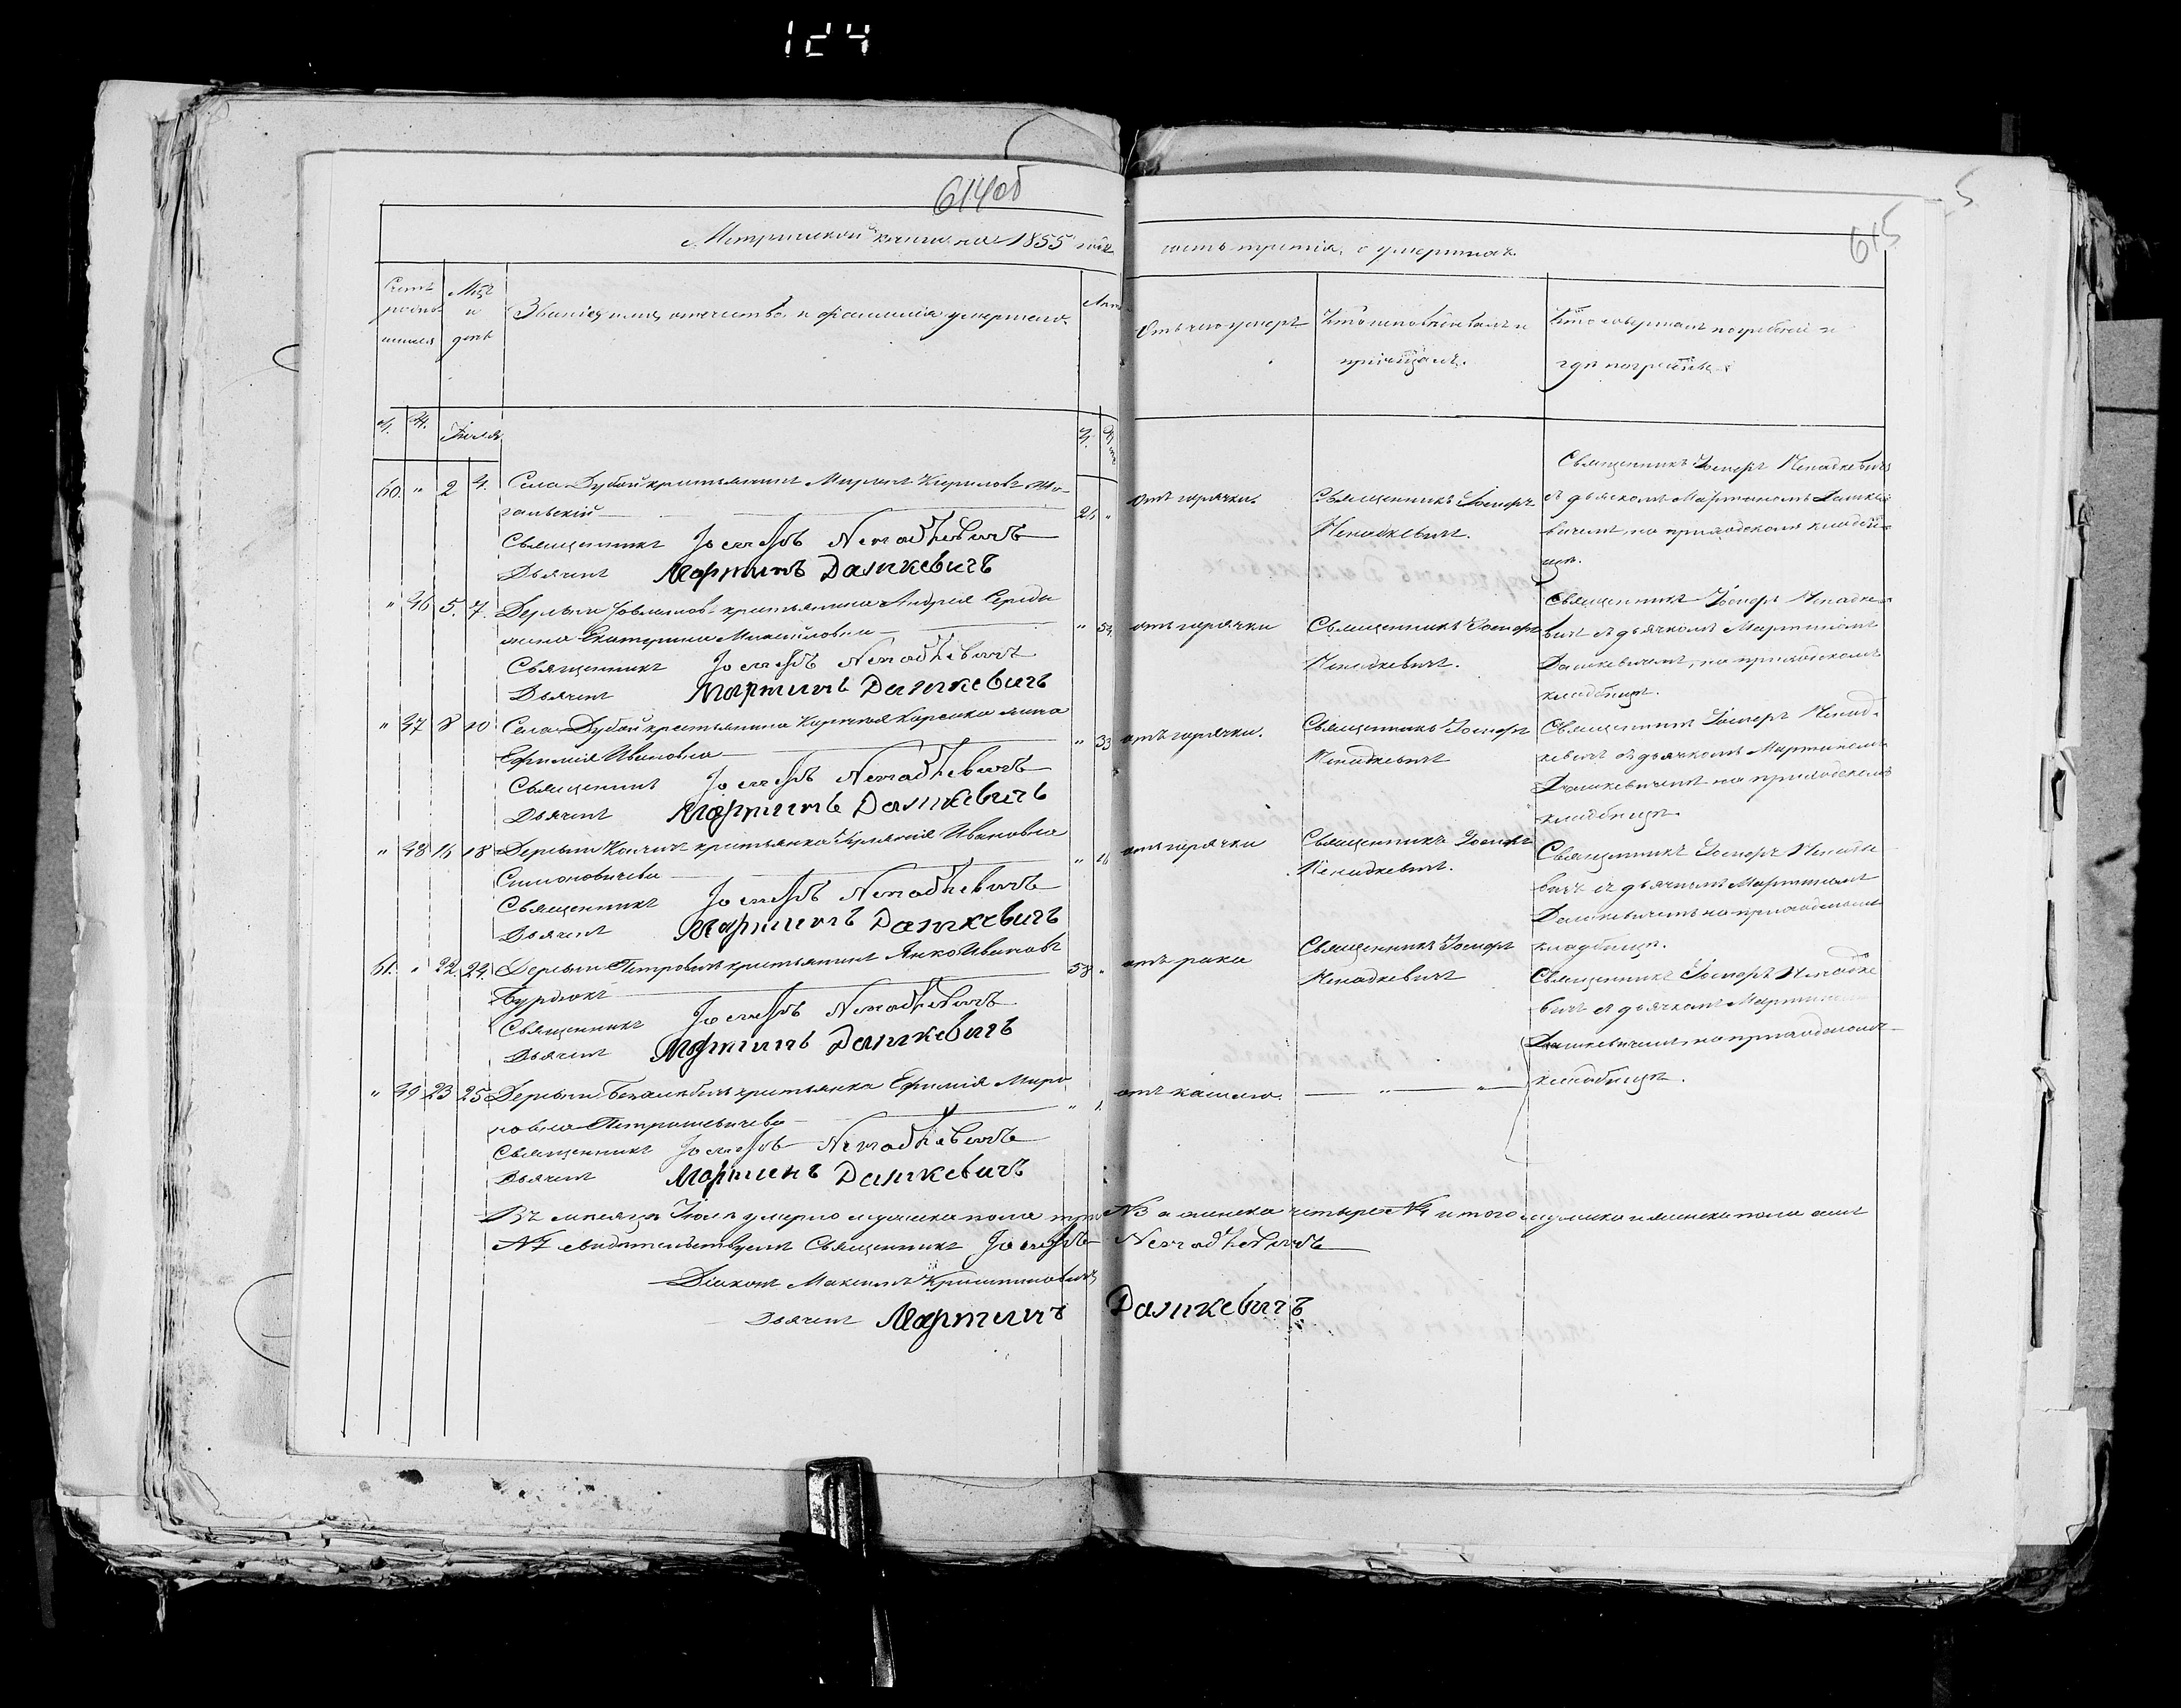 124
614об
615
Метрической книги на 1855 годъ часть третія, о умершихъ.
Мцъ и день
Званіе, имя, отечество и фамилія умершаго.
Лѣта
Отъ чего умеръ
Кто исповѣдывалъ и пріобщалъ.
Кто совершалъ погребеніе и гдѣ погребены
М. Ж. Іюля
60. " 2 4. Села Дубой крестьянинъ Миронъ Кириловъ
гальскій
Священникъ Іосифъ Ненадкевичъ
Дьячекъ Мартинъ Дашкевичъ
" отъ горячки. Священникъ Іосифъ
Ненадкевичъ.
Священникъ Іосифъ Ненадкевичъ
съ дьячкомъ Мартиномъ Дашке-
вичемъ, на приходскомъ кладби-
щѣ.
" 46 5. 7. Деревни крестьянина Андрея Середы
жена Екатерина Михайловна
Священникъ Іосифъ Ненадкевичъ
Дьячекъ Мартинъ Дашкевичъ
" 54. отъ горячки Священникъ Іосифъ
Ненадкевичъ.
Священникъ Іосифъ Ненадке-
вичъ съ дьячкомъ Мартиномъ
Дашкевичемъ, на приходскомъ
кладбищѣ.
" 47 8 10 Села Дубой крестьянина жена
Ефимія Ивановна
Священникъ Іосифъ Ненадкевичъ
Дьячекъ Мартинъ Дашкевичъ
" 33 отъ горячки. Священникъ Іосифъ
Ненадкевичъ
Священникъ Іосифъ Ненад-
кевичъ съ дьячкомъ Мартиномъ
Дашкевичемъ на приходскомъ
кладбищѣ.
" 48 16 18 Деревни крестьянка Ивановна
Симоновичева
Священникъ Іосифъ Ненадкевичъ
Дьячекъ Мартинъ Дашкевичъ
" отъ горячки Священникъ Іосифъ
Ненадкевичъ.
Священникъ Іосифъ
вичъ съ дьячкомъ Мартиномъ
Дашкевичемъ на приходскомъ
кладбищѣ.
61. " 22 24. Деревни Петровичъ крестьянинъ Янко Ивановъ
Бурдюкъ
Священникъ Іосифъ Ненадкевичъ
Дьячекъ Мартинъ Дашкевичъ
58 " отъ рака Священникъ Іосифъ
Ненадкевичъ
Священникъ Іосифъ Ненадке
вичъ съ дьячкомъ Мартиномъ
Дашкевичемъ, на приходскомъ
кладбищѣ.
" 49 23 25 Деревни крестьянка Ефимія Миро
новна Петрашевичева
Священникъ Іосифъ Ненадкевичъ
Дьячекъ Мартинъ Дашкевичъ
" 1. отъ кашлю. " "
Въ месяцѣ Іюлѣ умерло мужеска пола три №3 а женска четыре №4 и того мужска и женска пола семь
№7 свидѣтельствуемъ Священникъ Іосифъ Ненадкевичъ
Діаконъ Максимъ
Дьячекъ Мартинъ Дашкевичъ